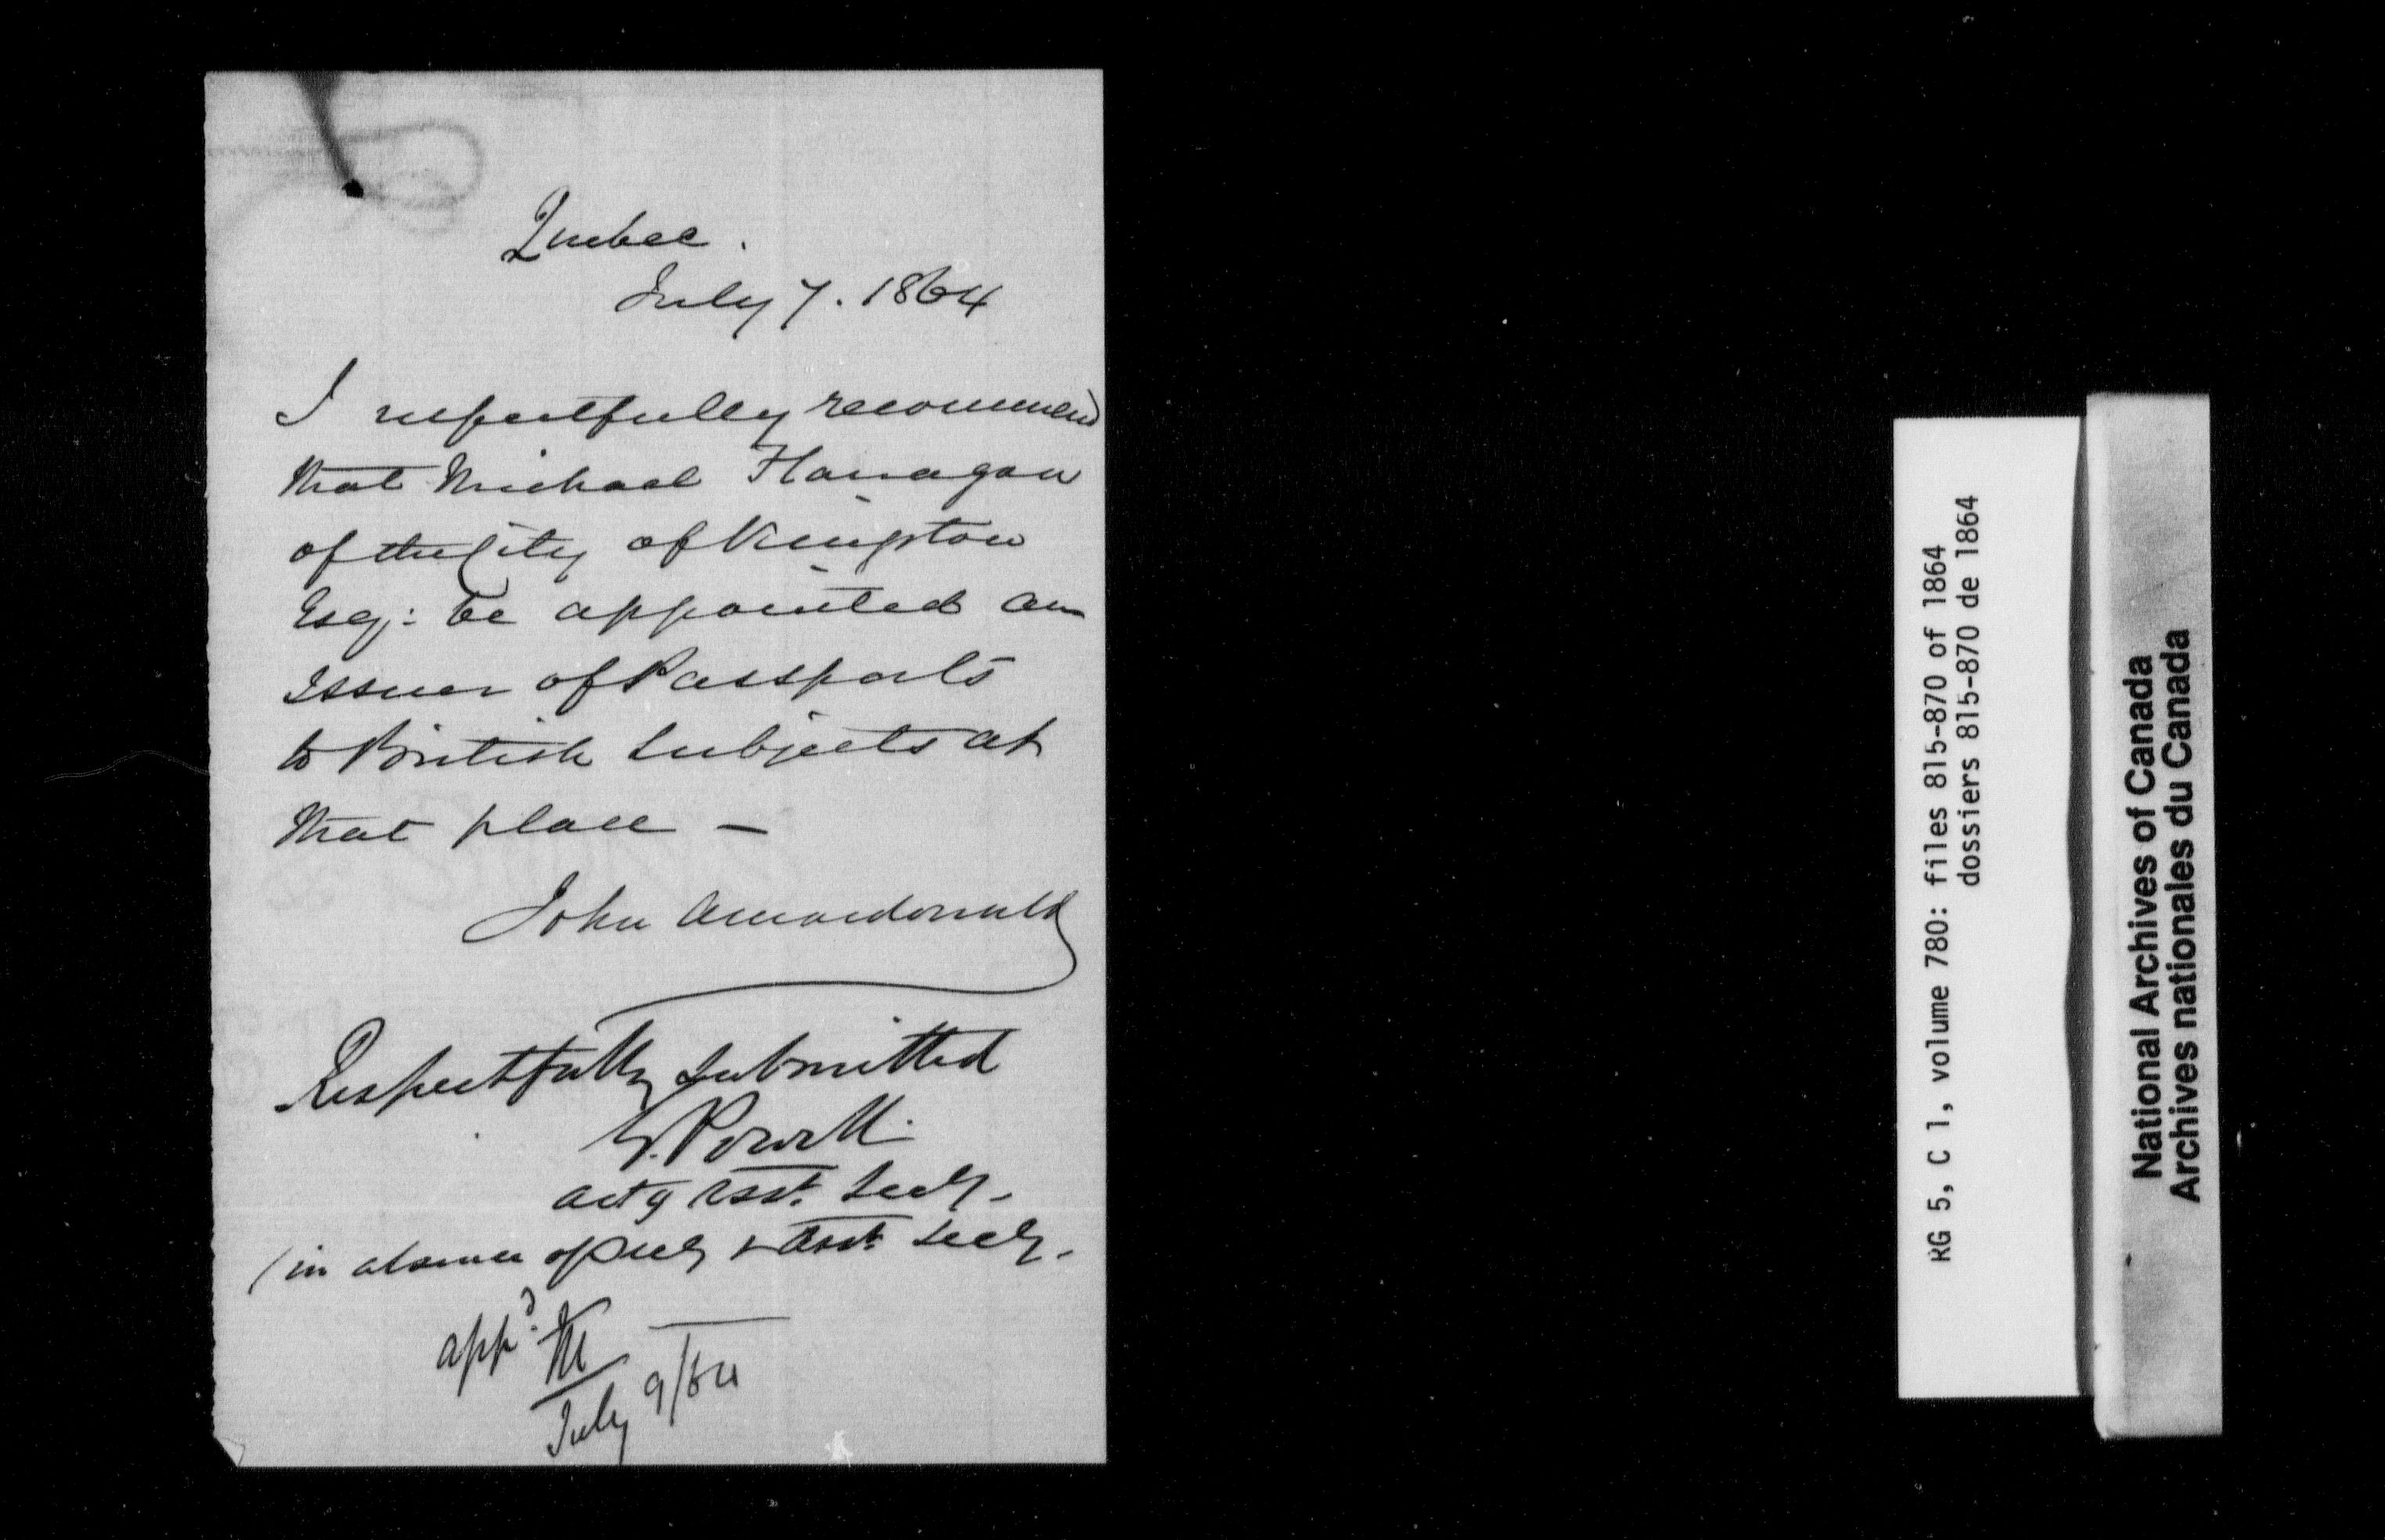 Quebec.
July 7. 1864
I respectfully recommend
that Michael Flanagan
of the City of Kingston
Esq: be appointed an
Issuer of Passports
to British Subjects at
that place —
John A Macdonald
Respectfully submitted
G. Powell.
actg Asst. Secy.
(in absence of Secy & Asst. Secy.
appd. M
July 9/64
RG 5, C 1, volume 780: files 815-870 of 1864
dossiers 815-870 de 1864
National Archives of Canada
Archives nationales du Canada